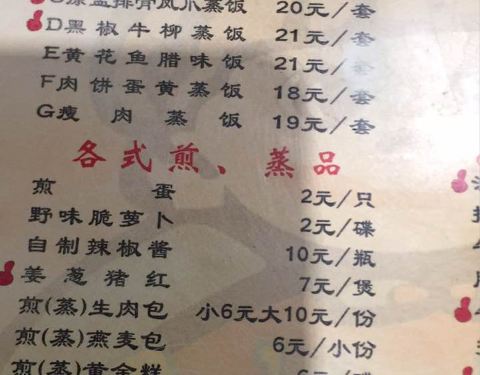 排骨凤爪蒸饭 20元/套
D黑椒牛柳蒸饭 21元/套
E黄花鱼腊味饭 21元/套
F肉饼蛋黄蒸饭 18元/套
G瘦肉蒸饭 19元/套
各式煎、蒸品
煎蛋 2元/只
野味脆萝卜 2元/碟
自制辣椒酱 10元/瓶
姜葱猪红 7元/煲
煎(蒸)生肉包 小6元大10元/份
煎(蒸)燕麦包 6元/小份
煎(蒸)黄金糕 6元/碟